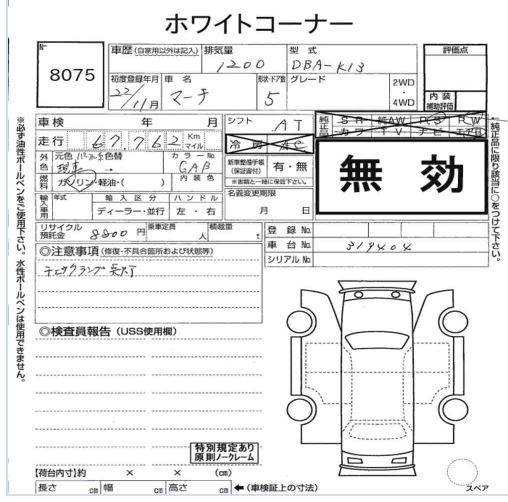 ホワイトコーナー
No
8075
車歴 (自家用以外は記入)
排気量
1200
型式
DBA-K13
評価点
初度登録年月
22/11月
車名
マーチ
形状・ドア数
5
グレード
2WD
・
4WD
内装
補助評価
車検 年 月
シフト
AT
純正品
SR 純AW PS PW
カワ TV ナビ エアB
走行 67,762 Km
マイル
冷房 AC
無効
外色
元色 パール系色替
カラーNo.
GAB
新車整備手帳
(保証書付)
有・無
※書類と一緒に保管下さい。
燃料
ガソリン・軽油・( )
内装色
名義変更期限
月 日
輸入車
年式
輸入区分
ディーラー・並行
ハンドル
左・右
リサイクル
預託金
8800円
乗車定員
人
積載量
t
登録No.
車台No.
319404
シリアルNo.
◎注意事項 (修復・不具合箇所および状態等)
チェックランプ点灯
◎検査員報告 (USS使用欄)
特別規定あり
原則ノークレーム
【荷台内寸】約 × × (cm)
長さ cm 幅 cm 高さ cm ←(車検証上の寸法)
スペア
※必ず油性ボールペンをご使用下さい。水性ボールペンは使用できません。
純正品に限り該当に○をつけて下さい。